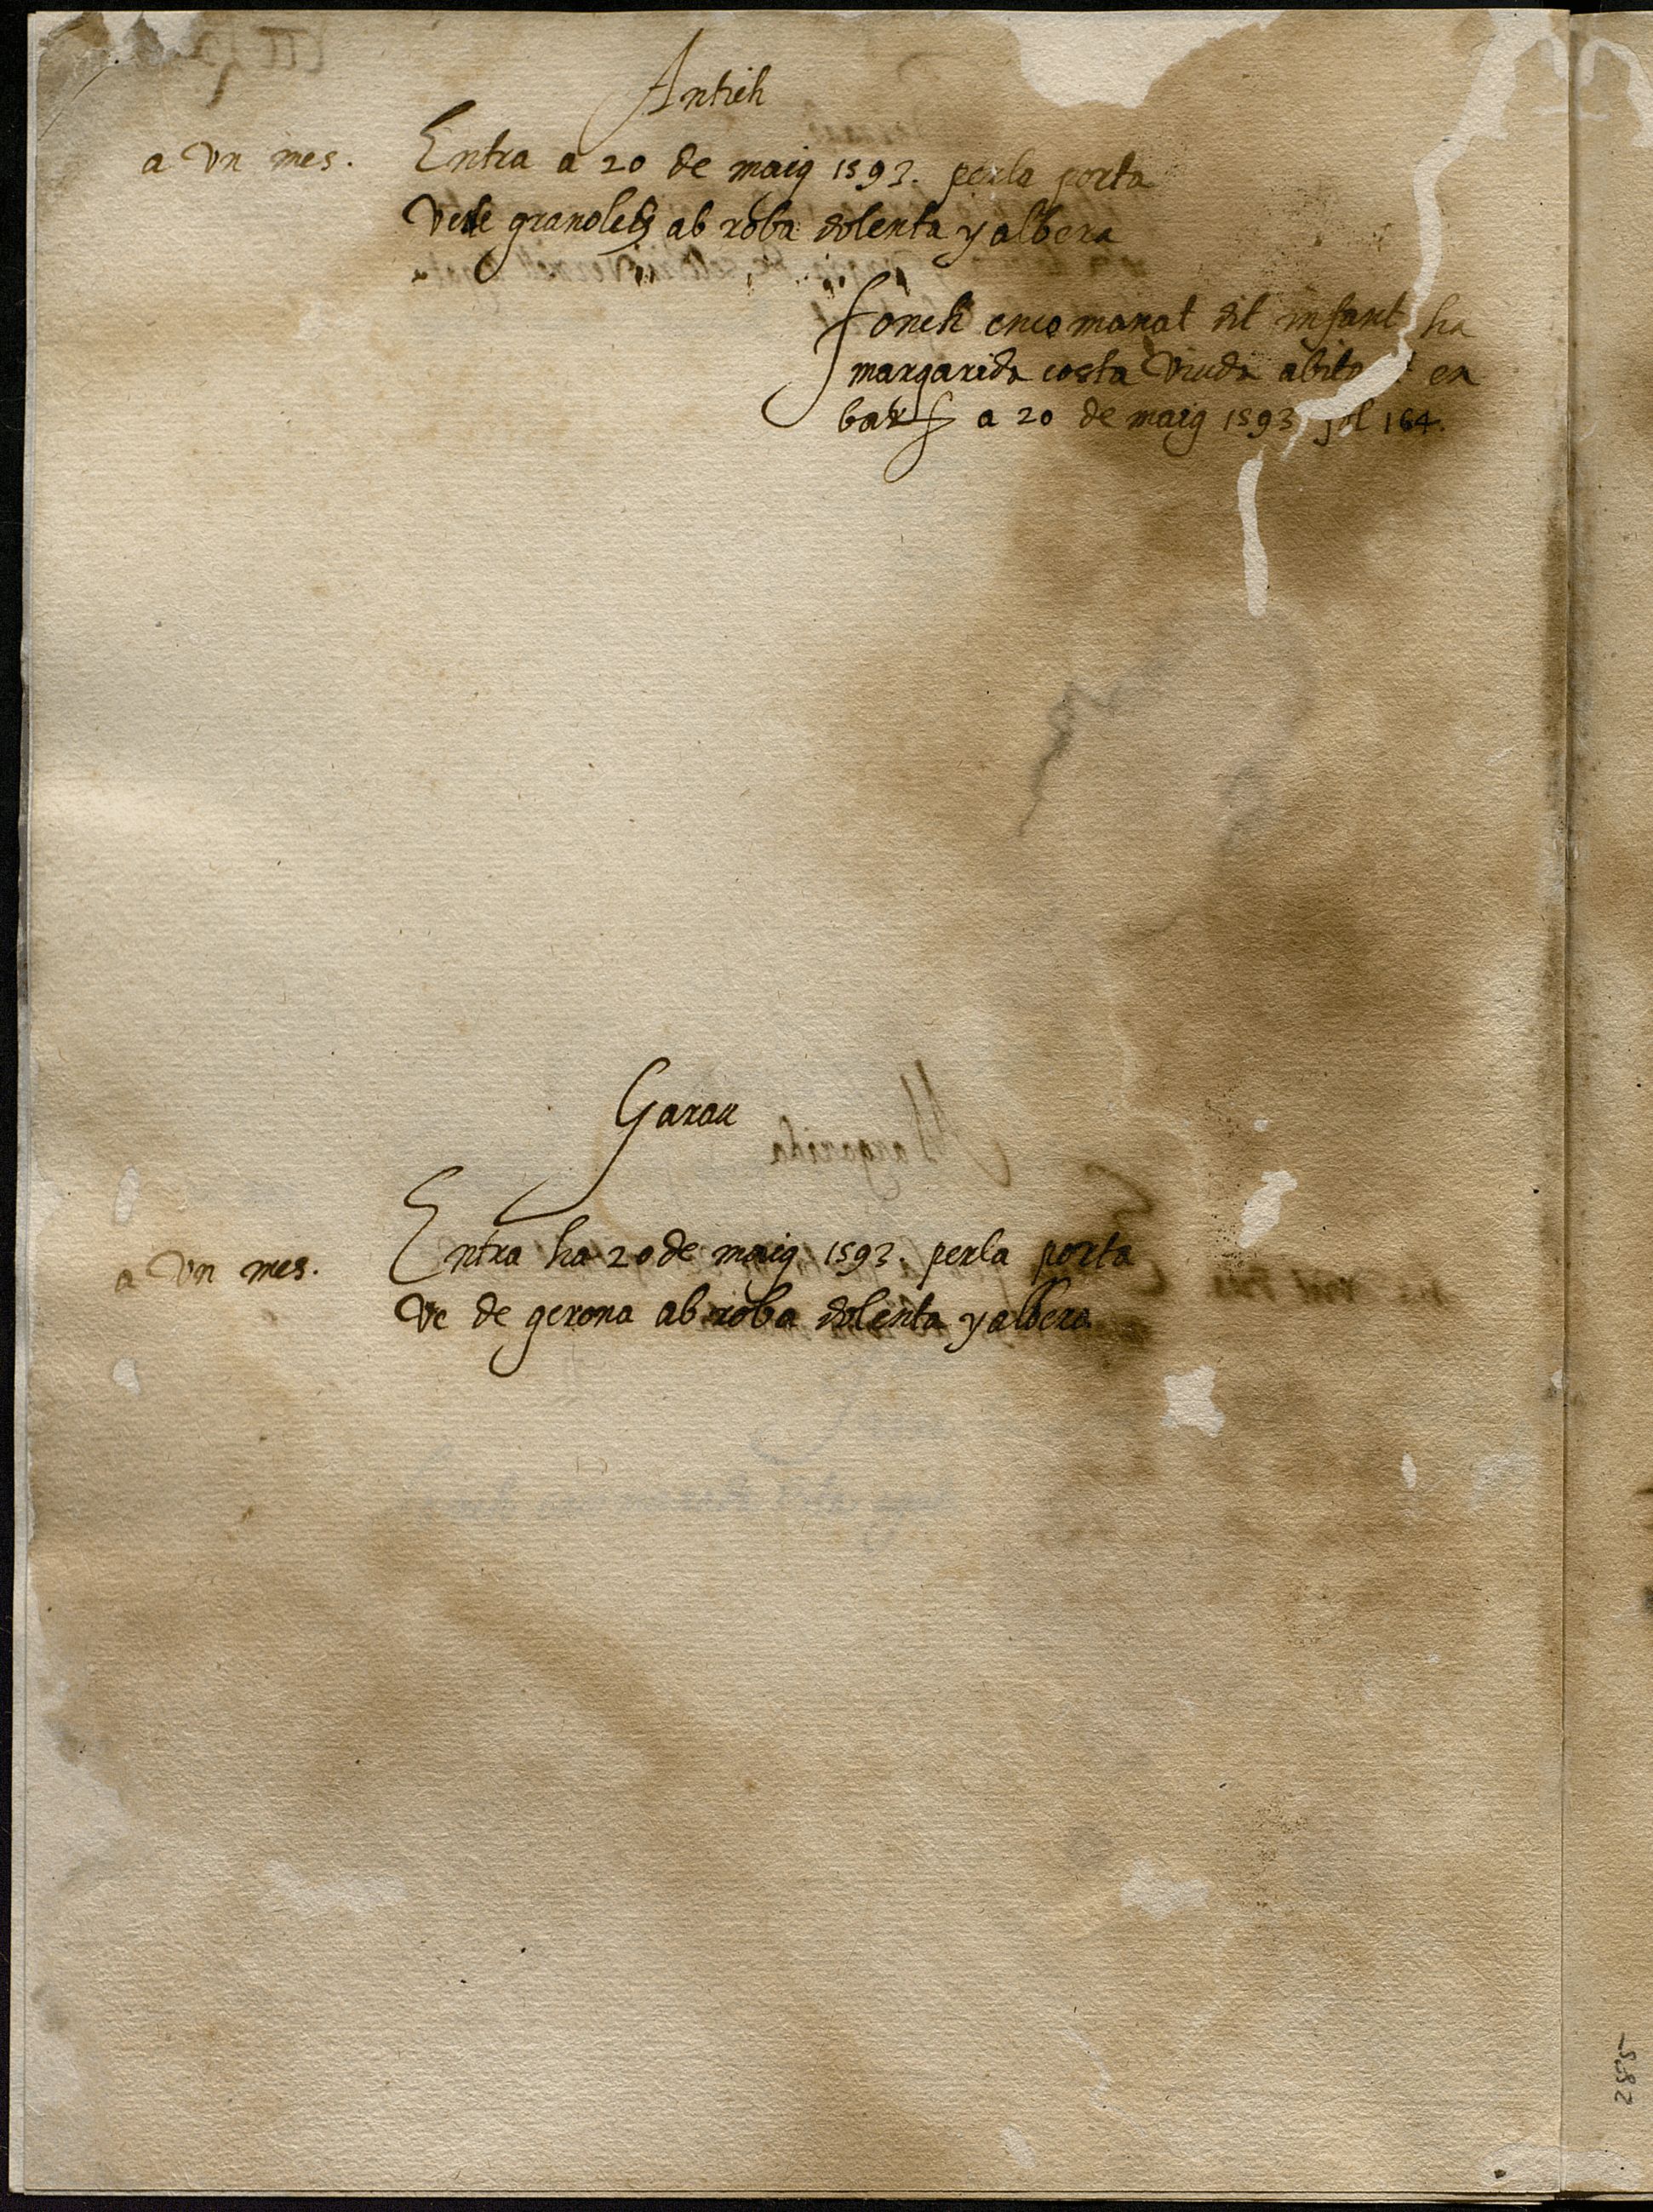 Antich
a vn mes. Entra a 20 de maig 1593. perla porta
ve de granoles ab roba dolenta y albera
fonch encomanat dit infant ha
margarida costa viuda abita t en
bar^a a 20 de maig 1593 fol 164.
Garau
a vn mes. Entra ha 20 de maig 1593. perla porta
ve de gerona ab roba dolenta y albera
2885